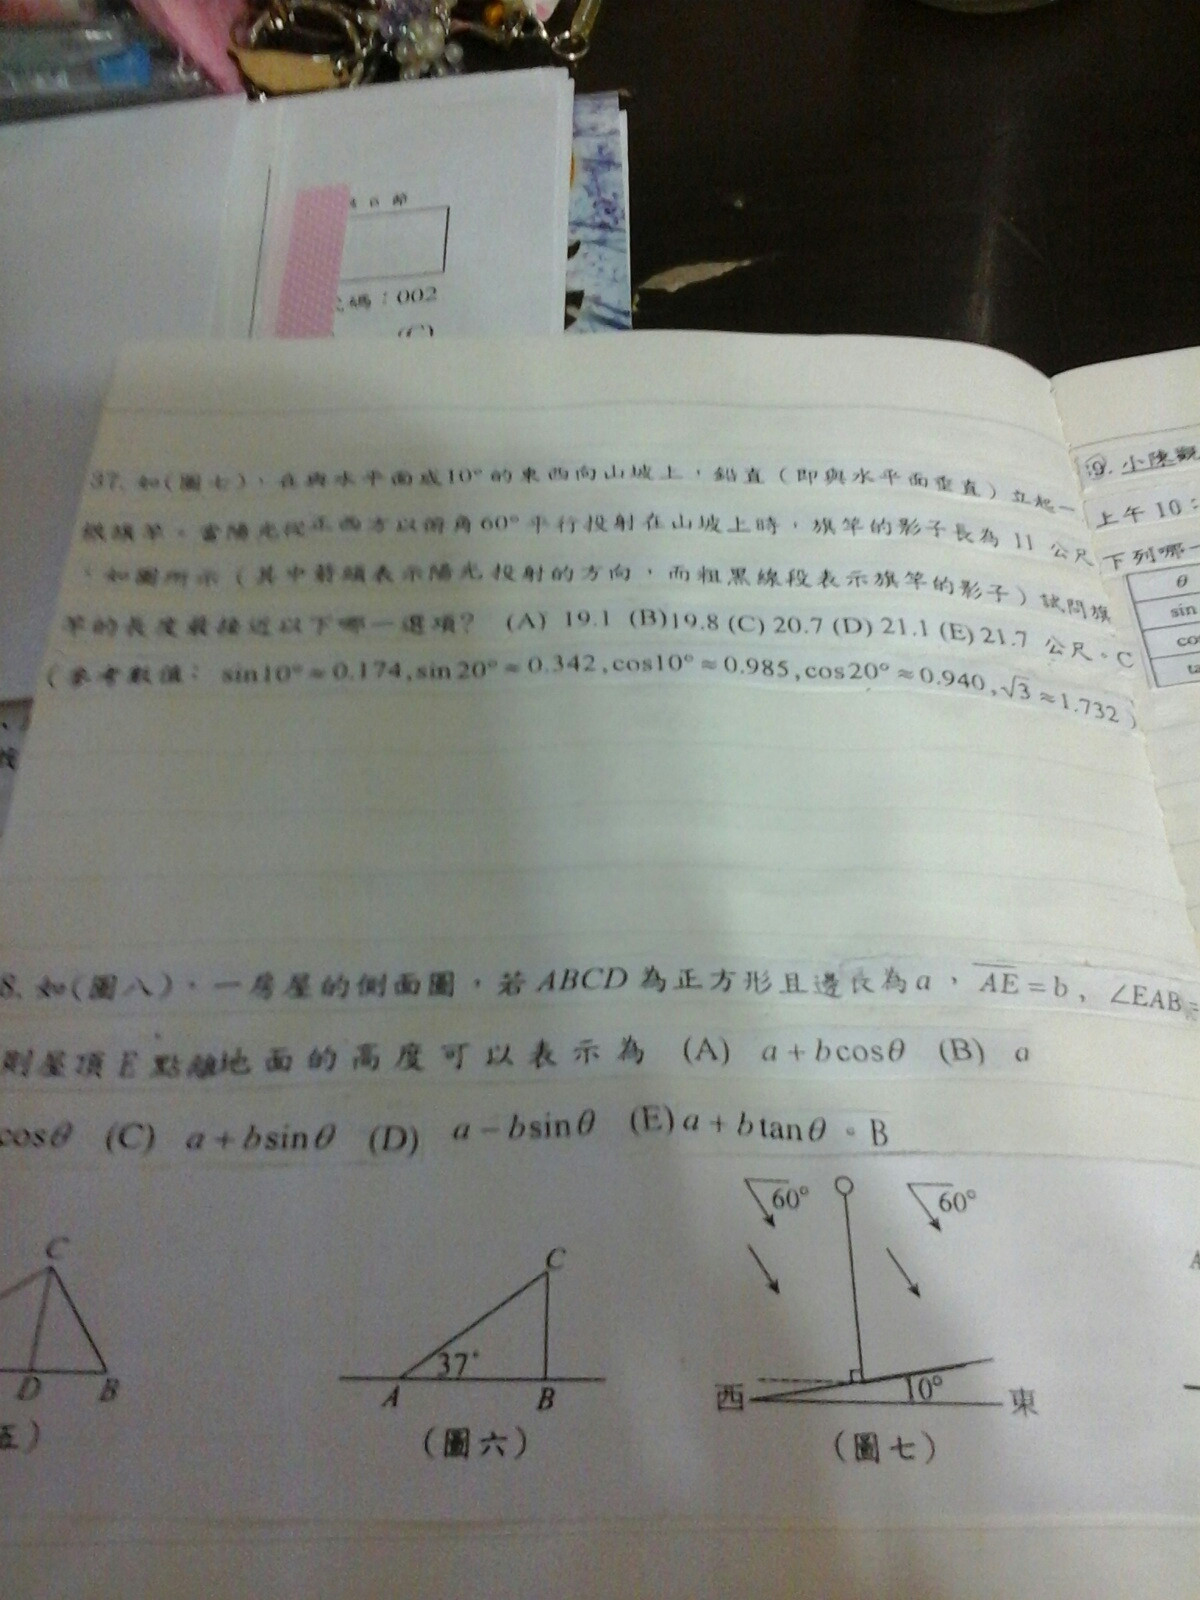 碼：002
(C)
37. 如(圖七)，在與水平面成10°的東西向山坡上，鉛直（即與水平面垂直）立起一
根旗竿。當陽光從正西方以俯角60°平行投射在山坡上時，旗竿的影子長為 11 公尺
，如圖所示（其中箭頭表示陽光投射的方向，而粗黑線段表示旗竿的影子）試問旗
竿的長度最接近以下哪一選項？ (A) 19.1 (B)19.8 (C) 20.7 (D) 21.1 (E) 21.7 公尺。C
(參考數值：sin10°≈0.174, sin20°≈0.342, cos10°≈0.985, cos20°≈0.940, √3≈1.732)
8. 如(圖八)，一房屋的側面圖，若ABCD為正方形且邊長為a，AE=b，∠EAB=
則屋頂E點離地面的高度可以表示為 (A) a+bcosθ (B) a
cosθ (C) a+bsinθ (D) a−bsinθ (E) a+btanθ。B
9. 小陳觀
上午10：
下列哪一
θ
sin
C
D
B
C
37°
A
B
(圖六)
60°
60°
西
10°
東
(圖七)